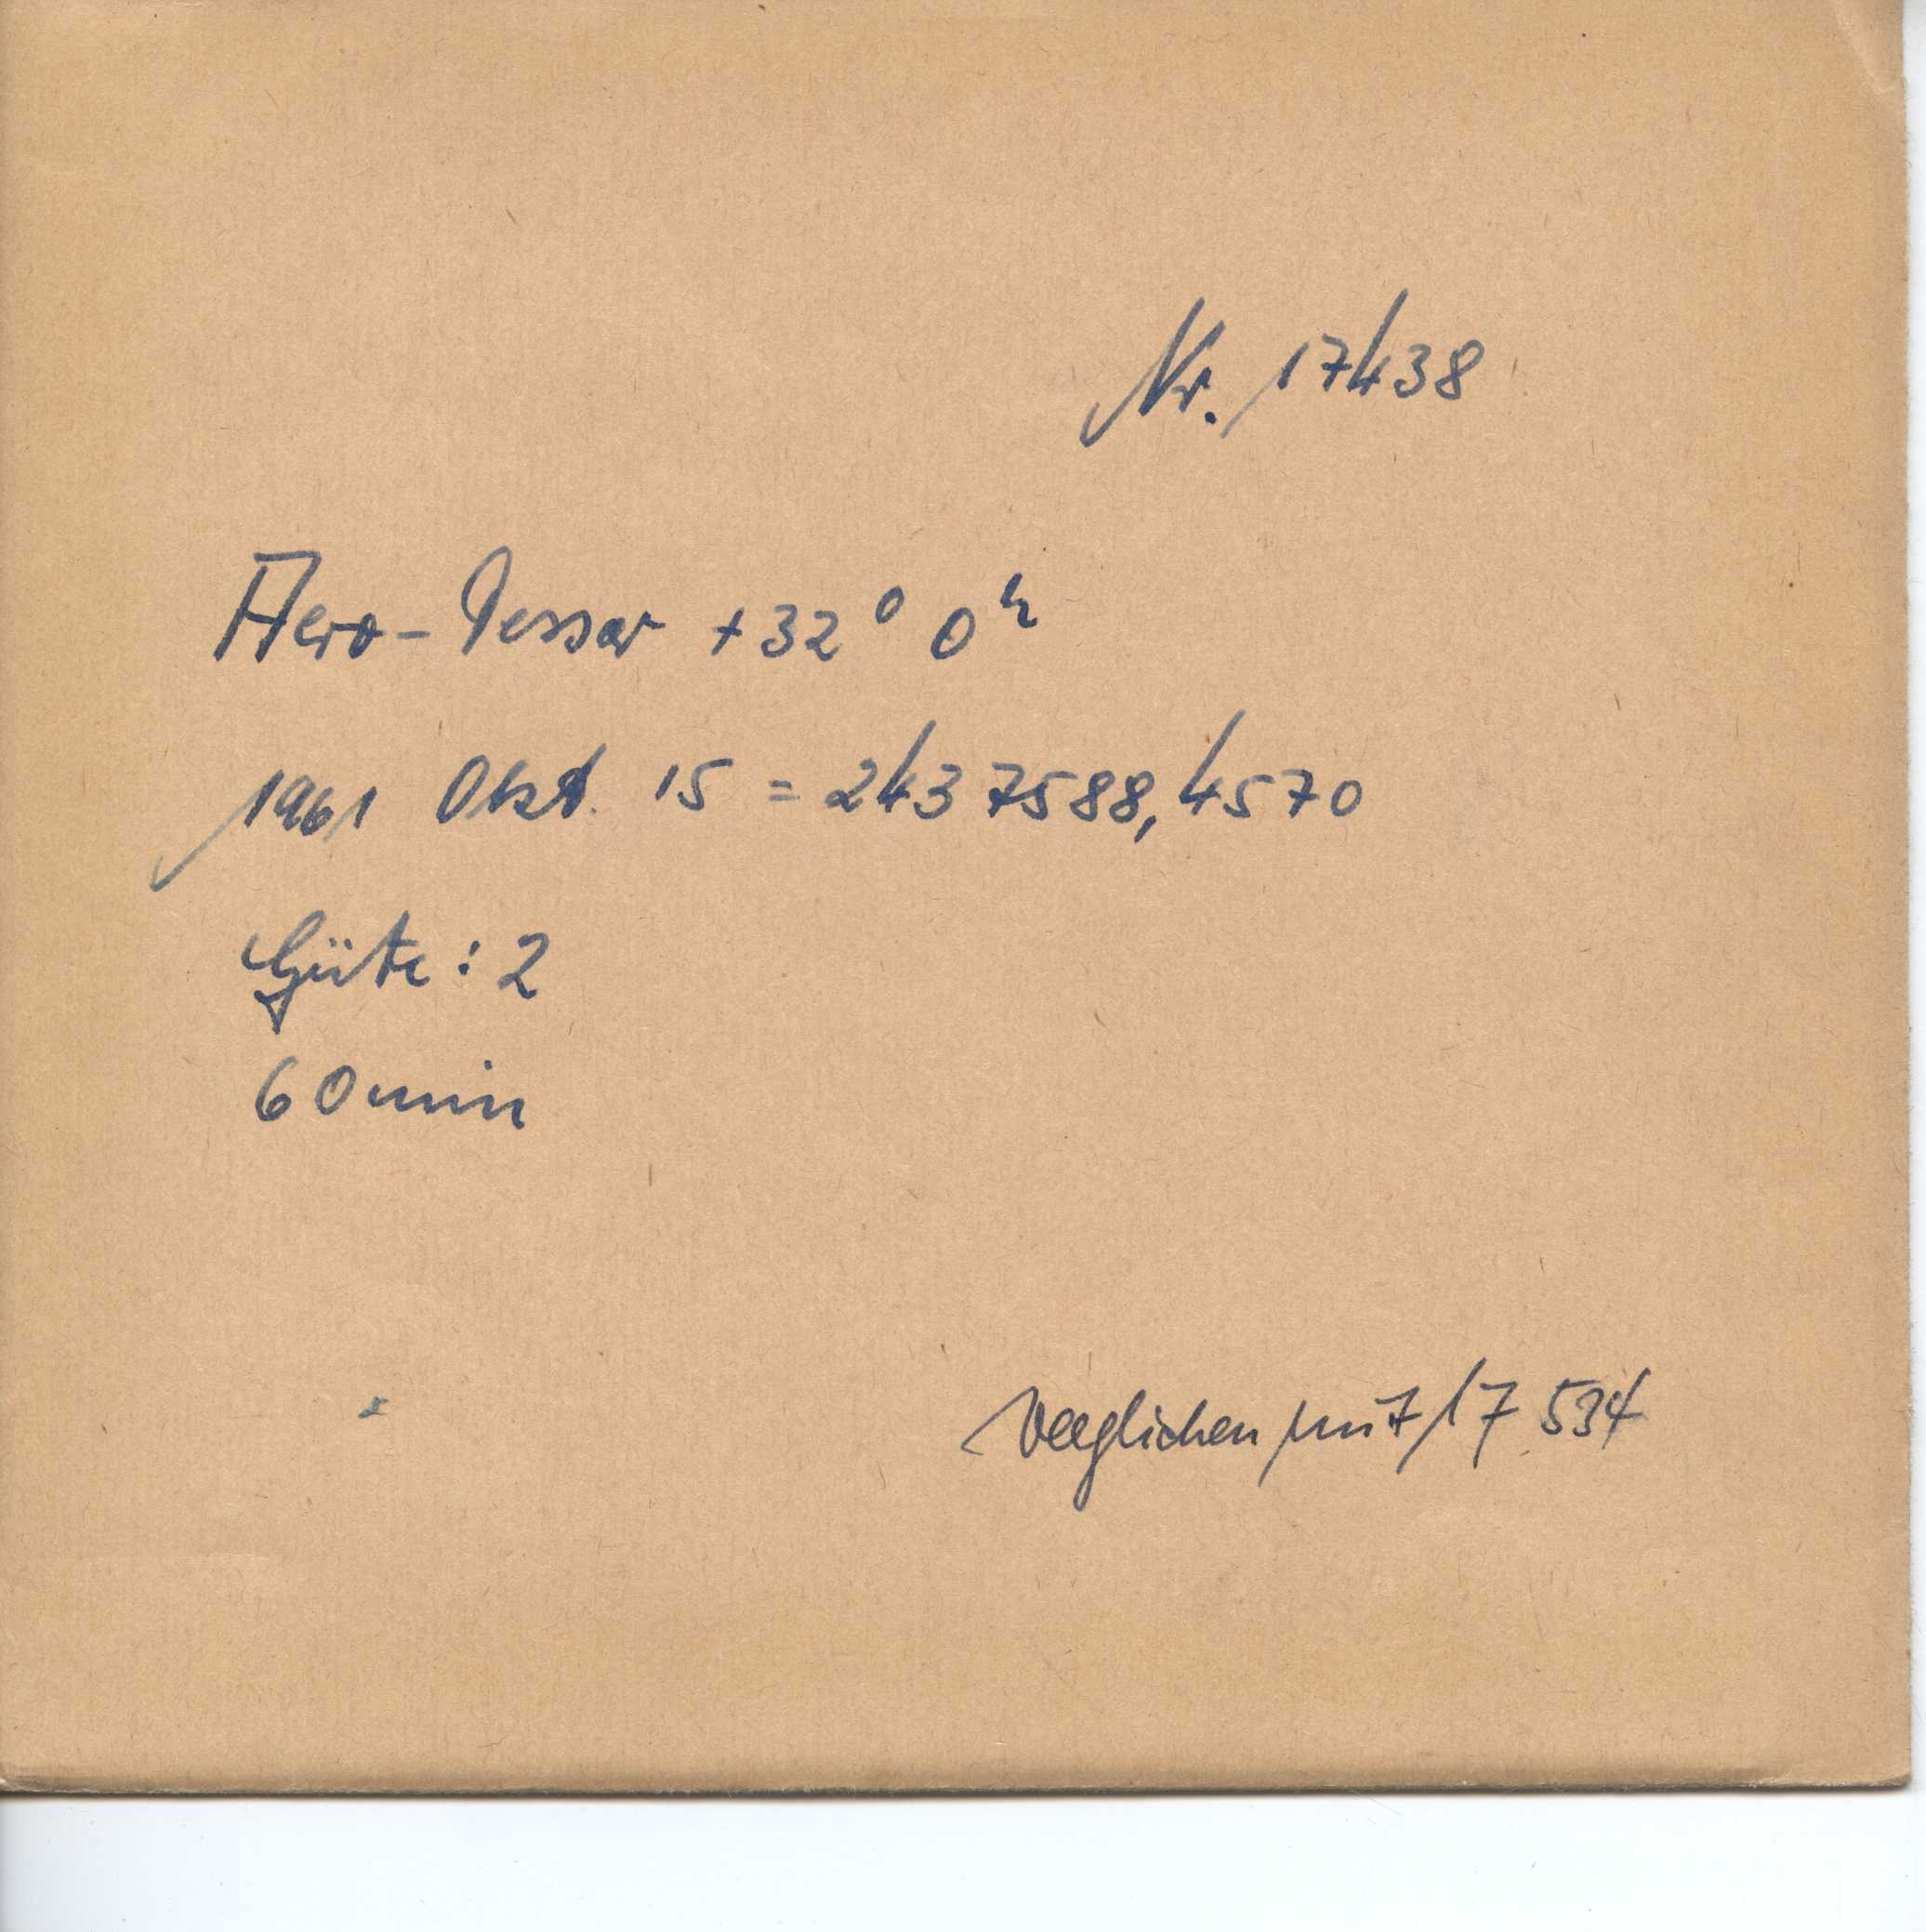 Nr. 17438
Aero-Tessar +32° 0ʰ
1961 Okt. 15 = 2437588,4570
Güte: 2
60 min
verglichen mit 17 534